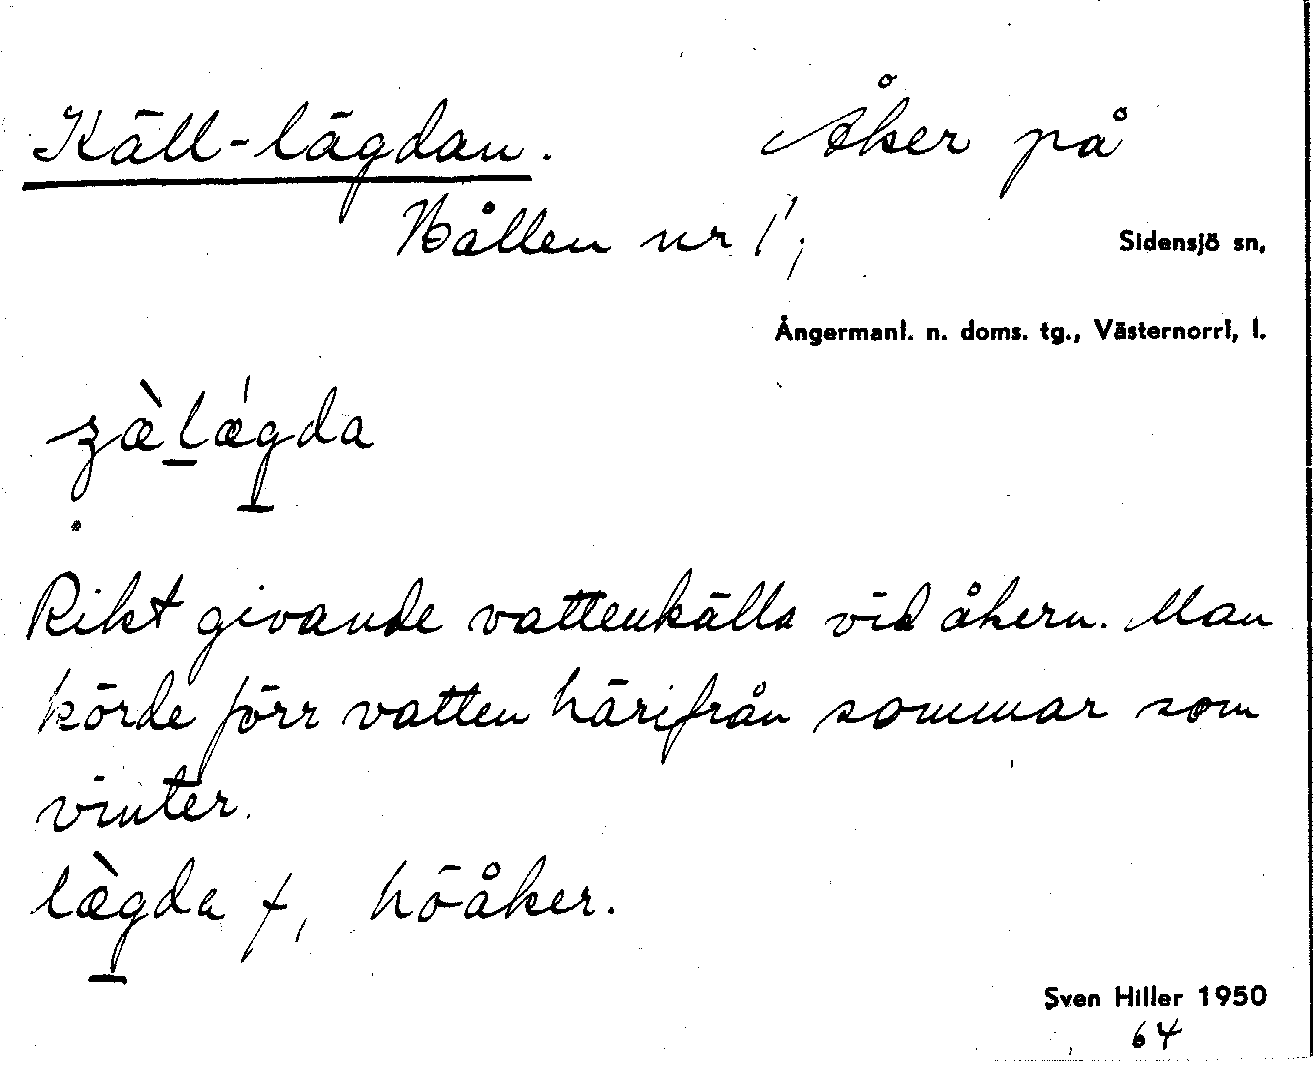 Käll-lägdan. Åker på
Hållen nr 1,
Sidensjö sn,
Ångermanl. n. doms. tg., Västernorrl, l.
zæ̀lǽgda
Rikt givande vattenkälla vid åkern. Man
körde förr vatten härifrån sommar som
vinter.
læ̀gda f, höåker.
Sven Hiller 1950
64